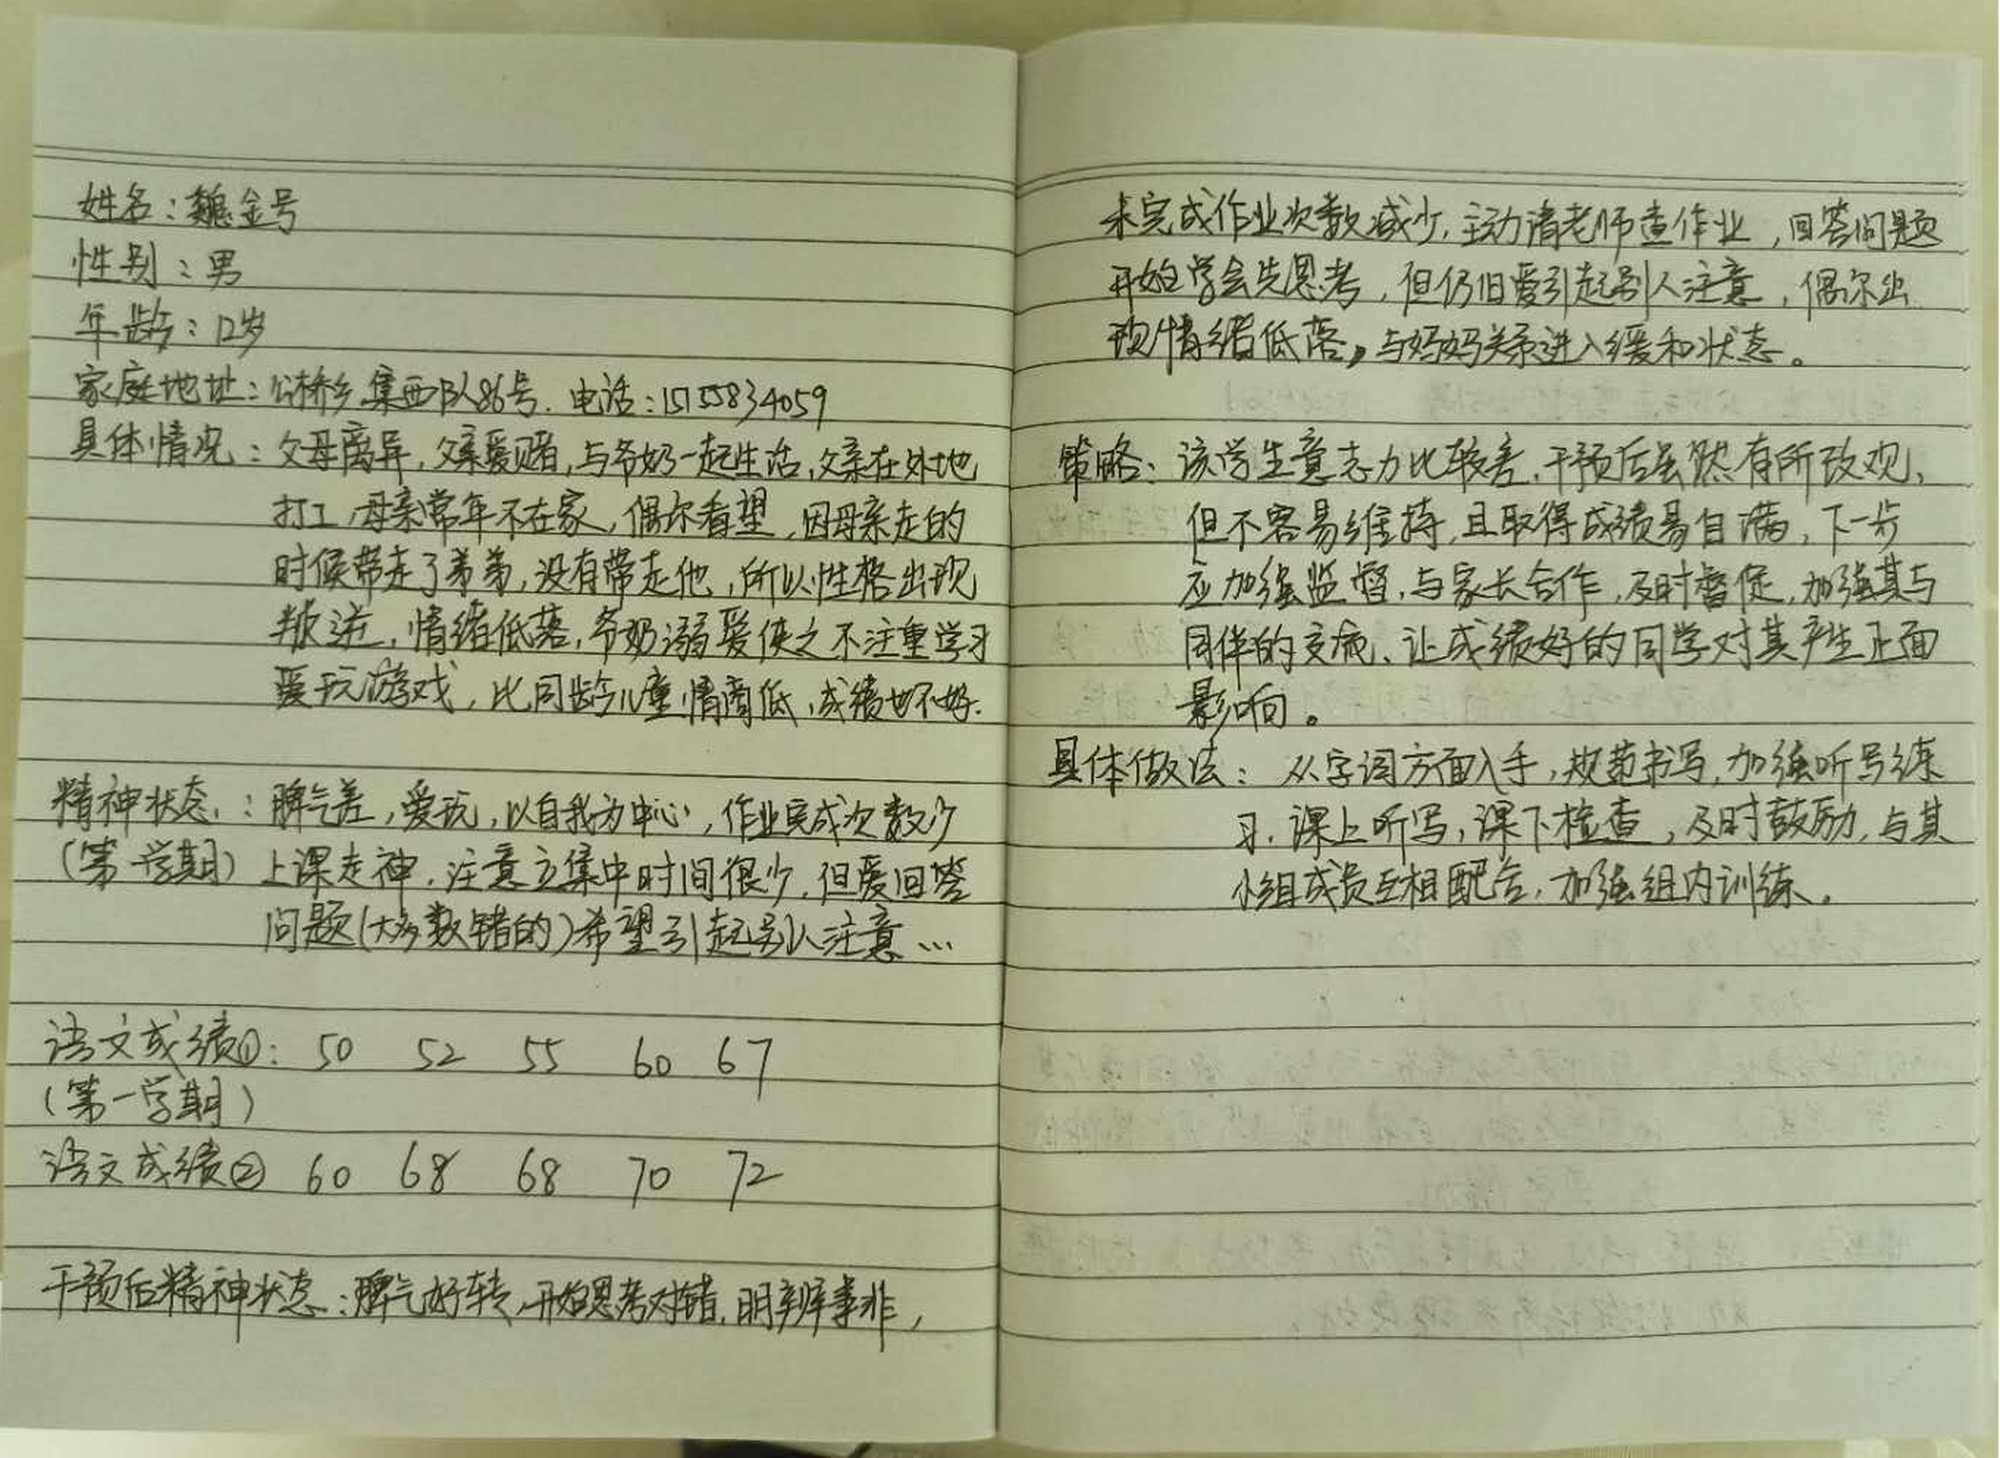 姓名：魏金号
性别：男
年龄：12岁
家庭地址：公桥乡集西队86号．电话：15155834059
具体情况：父母离异，父亲爱赌，与爷奶一起生活，父亲在外地
打工，母亲常年不在家，偶尔看望，因母亲走的
时候带走了弟弟，没有带走他，所以性格出现
叛逆，情绪低落，爷奶溺爱使之不注重学习
爱玩游戏，比同龄儿童情商低，成绩也不好．
精神状态：脾气差，爱玩，以自我为中心，作业完成次数少
（第一学期）上课走神，注意力集中时间很少，但爱回答
问题(大多数错的)希望引起别人注意…
语文成绩①：50 52 55 60 67
（第一学期）
语文成绩② 60 68 68 70 72
干预后精神状态：脾气好转，开始思考对错，明辨事非，
未完成作业次数减少，主动请老师查作业，回答问题
开始学会先思考，但仍旧爱引起别人注意，偶尔出
现情绪低落，与妈妈关系进入缓和状态。
策略：该学生意志力比较差，干预后虽然有所改观，
但不容易维持，且取得成绩易自满，下一步
应加强监督，与家长合作，及时督促，加强其与
同伴的交流、让成绩好的同学对其产生正面
影响。
具体做法：从字词方面入手，规范书写，加强听写练
习，课上听写，课下检查，及时鼓励，与其
小组成员互相配合，加强组内训练。